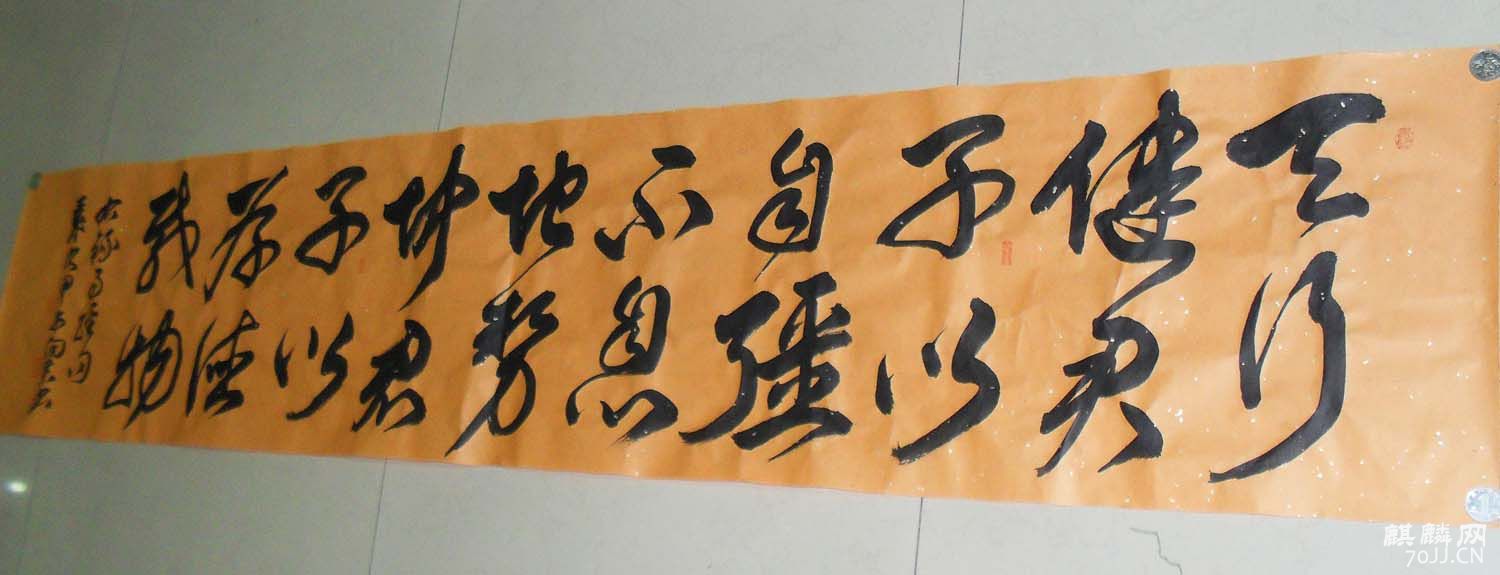 天行
健君
子以
自彊
不息
地势
坤君
子以
厚德
载物
右录易经句
麒麟网
70JJ.CN